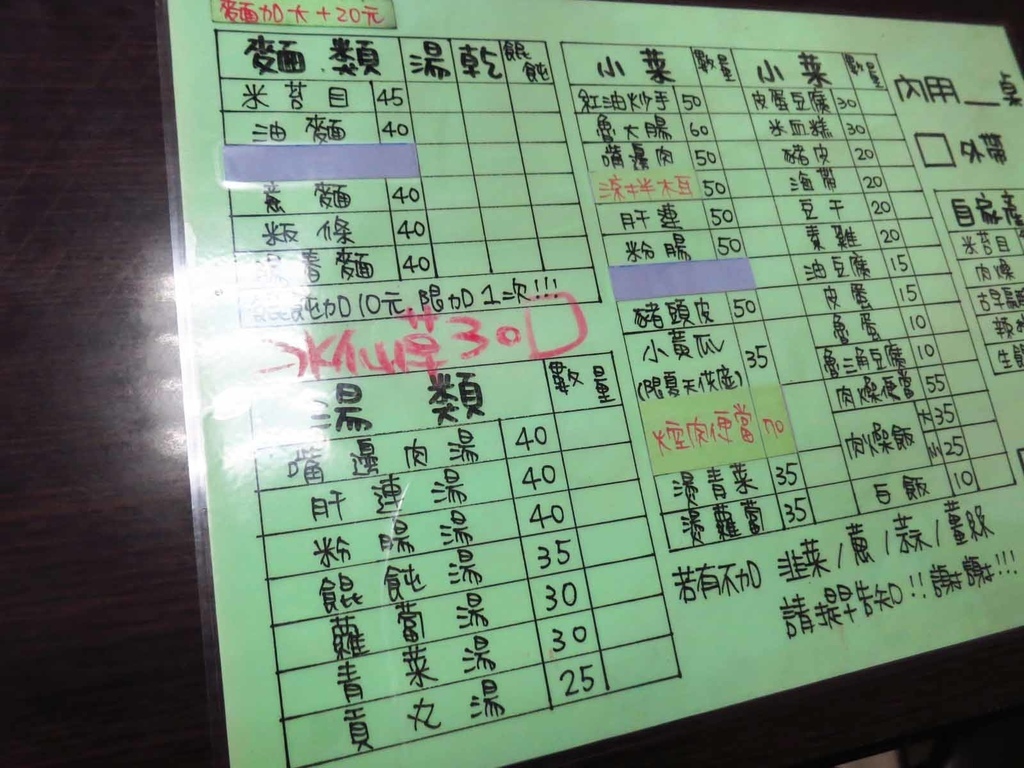 麵加大+20元
麵類 湯 乾 餛飩
米苔目 45
油麵 40
意麵 40
粄條 40
麵 40
餛飩加10元,限加1次!!!
水仙草30
湯類 數量
嘴邊肉湯 40
肝連湯 40
粉腸湯 40
餛飩湯 35
蘿蔔湯 30
青菜湯 30
貢丸湯 25
小菜 數量
紅油炒手 50
魯大腸 60
嘴邊肉 50
涼拌木耳 50
肝連 50
粉腸 50
豬頭皮 50
小黃瓜 35
(限夏天供應)
焢肉便當 70
燙青菜 35
燙蘿蔔 35
小菜 數量
皮蛋豆腐 30
米血糕 30
豬皮 20
海帶 20
豆干 20
素雞 20
油豆腐 15
皮蛋 15
魯蛋 10
魯三角豆腐 10
肉燥便當 55
肉燥飯 大35
小25
白飯 10
內用__桌
外帶
自家產
米苔目
肉燥
若有不加 韭菜/蔥/蒜/薑絲
請提早告知!!謝謝!!!